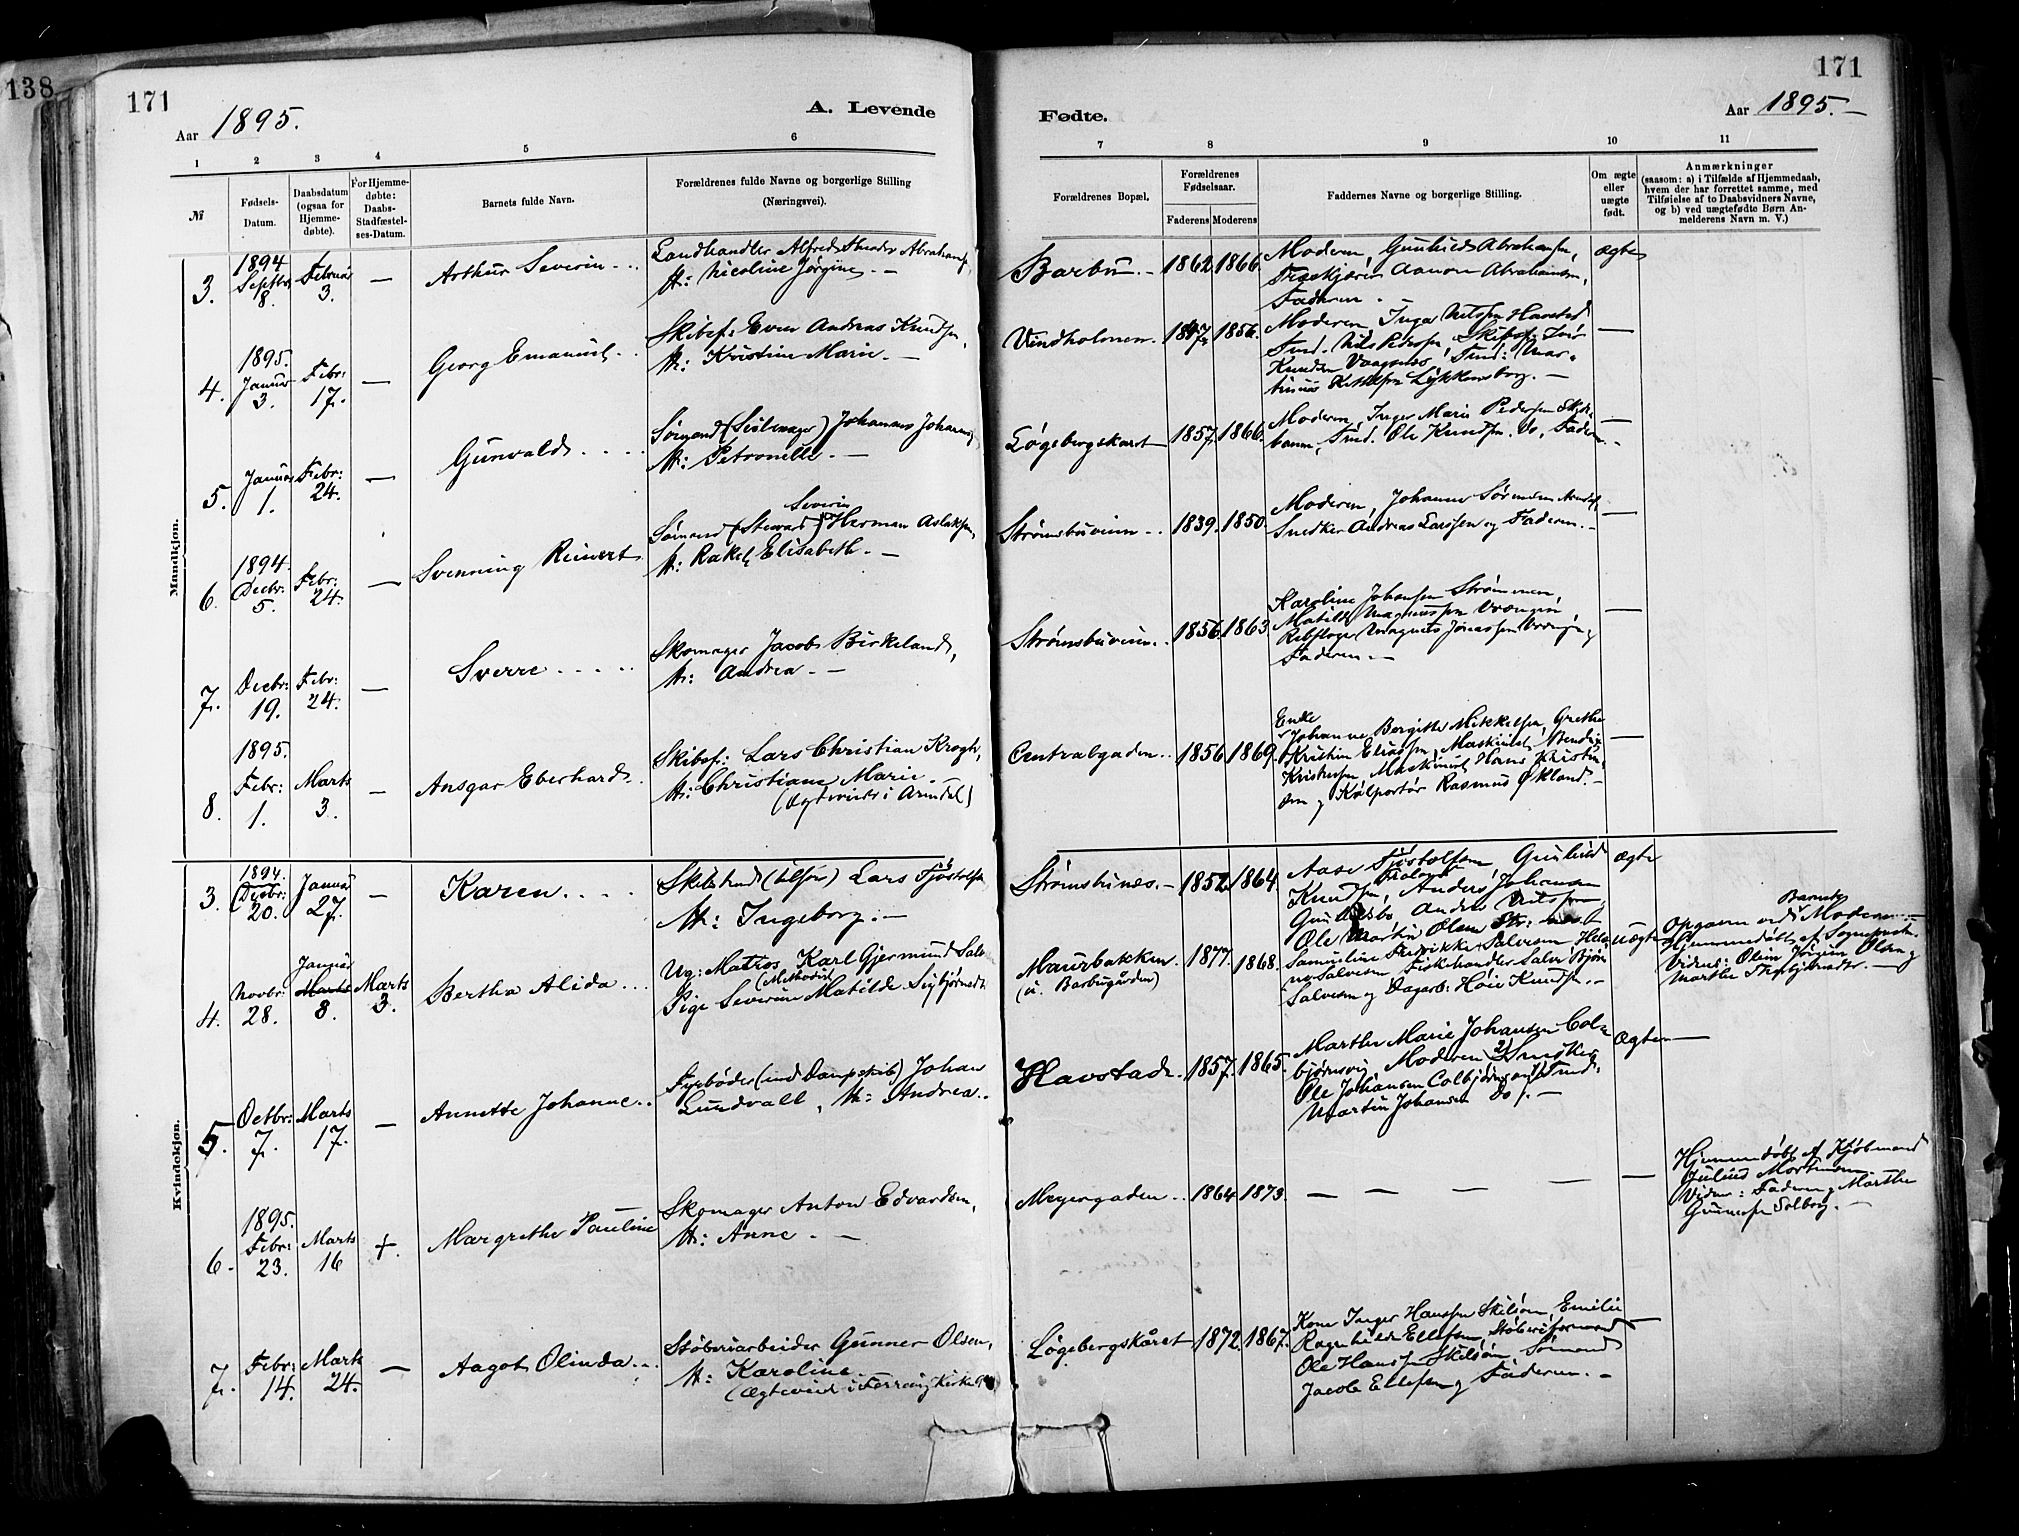 138
171
Aar 1895.
A. Levende
Fødte.
171
Aar 1895.
1 2 3 4 5 6 7 8 9 10 11
№
Fødsels-
Datum.
Daabsdatum
(ogsaa for
Hjemme-
døbte).
For Hjemme-
døbte:
Daabs-
Stadfæstel-
ses-Datum.
Barnets fulde Navn.
Forældrenes fulde Navne og borgerlige Stilling
(Næringsvei).
Forældrenes Bopæl.
Forældrenes
Fødselsaar.
Faderens Moderens
Faddernes Navne og borgerlige Stilling.
Om ægte
eller
uægte
født.
Anmærkninger
(saasom: a) i Tilfælde af Hjemmedaab,
hvem der har forrettet samme, med
Tilføielse af to Daabsvidners Navne,
og b) ved uægtefødte Børn An-
melderens Navn m. V.)
Mandkjøn.
3.
1894
Septbr
8.
Februar
3.
—
Arthur Severin
Landhandler Alfred Abrahamsen
H: Nicoline Jørgine. —
Barbu. —
1862. 1866.
Moderen, Gunhild Abrahamsen,
Aanon Abrahamsen,
Faderen. —
ægte
4.
1895.
Januar
3.
Febr:
17.
—
Georg Emanuel.
Skibsf: Even Andreas Knudsen,
H: Kristine Marie. —
Vindholmen.
1847. 1856.
Moderen, Inga Nilsen Havstad
Tmd. Nils Pedersen, Skibsf:
Knudsen Vaagsnes, Tmd: Mar-
tinus Kettelsen Lykkensborg. —
—
5.
Januar
1.
Febr:
24.
—
Gunvald
Sømand (Seilmager) Johannes Johannes
H: Petronelle. —
Løgebergskaret
1857. 1866.
Moderen, Inger Marie Pedersen
Tmd. Ole Knudsen. Do, Faderen
—
6.
1894
Decbr.
5.
Febr:
24.
—
Svenning Reinert
Severin
Sømand (Steward) Herman Aslaksen,
H: Rakel Elisabeth. —
Strømsbuveien
1839. 1850.
Moderen, Johanne Sørensen Arendal,
Snedker Andreas Larssen og Faderen. —
—
7.
Decbr:
19.
Febr:
24.
—
Sverre
Skomager Jacob Birkeland,
H: Andrea. —
Strømsbuveien
1856. 1863.
Karoline Johansen Strømmen,
Matilde Magnussen Vrængen,
Rebslager Magnus Jonassen Vrængen
Faderen. —
—
8.
1895.
Febr:
1.
Marts
3.
—
Ansgar Eberhard
Skibsf: Lars Christian Krogh,
H: Christiane Marie.
(Ægteviede i Arendal)
Centralgaden
1856. 1869.
Enke
Johanne Borgitte Mikkelsen, Grethe
Kristine Eliassen, Maskinist Bendix
Kristensen, Maskinist Hans Kristian-
sen og Kolportør Rasmus Økland. —
—
Kvindekjøn.
3.
1894.
Decbr:
20.
Januar
27.
—
Karen
Skibstmd (tilsjøs) Lars Fjøstolfsen
H: Ingeborg. —
Strømsbunes. —
1852. 1864.
Aase Fjøstolfsen, Gunhild
Knudsen, Anders Johansen
Gunhildsbø, Anders Nilsen
Ole Martin Olsen
ægte
4.
Novbr:
28.
Januar
Marts
3.
Marts
3.
Bertha Alida
Ug: Matros Karl Gjermund Salv
(Methodist)
Pige Severine Matilde Sigbjørnsdt.
Maurbakken
(u. Barbugården)
1877. 1868.
Samueline Fredrikke Salvesen, Hele-
ne Salvesen, Fiskhandler Salve Bjørn
Salvesen og Dagarb: Høie Knudsen. —
uægte
Barnets
Opgaven ved Moderen
Hjemmedøbt af Sognepræsten.
Vidner: Olein Jørgine Olsen og
Marthe —
5.
Octbr:
7.
Marts
17.
—
Annette Johanne
Fyrbøder (med Dampskib) Johan
Lundvall, H: Andrea
Havstad
1857. 1865.
Marthe Marie Johansen Col-
bjørnsvig, Moderen, Snedker
Ole Johansen Colbjørnsvig, Tmd.
Martin Johansen Do. —
Ægte
—
6.
1895.
Febr:
23.
Marts
16
+.
Margrethe Pauline
Skomager Anton Edvardsen,
H: Anne. —
Meyergaden
1864. 1873.
— — — — —
—
Hjemmedøbt af Kjøbmand
Gjulius Mortensen
Vidner: Faderen og Marthe
Gunnersen Solborg. —
7.
Febr:
14.
Marts
24.
—
Aagot Olinda
Støberiarbeider Gunner Olsen,
H: Karoline
(Ægteviede i Færvig Kirke
Løgebergskåret
1872. 1867.
Kone Inger Hanssen Skilsøen, Emilie
Ragnhilde Ellefsen, Støberiformand
Ole Hanssen Skilsøen, Sømand
Jacob Ellefsen og Faderen. —
—